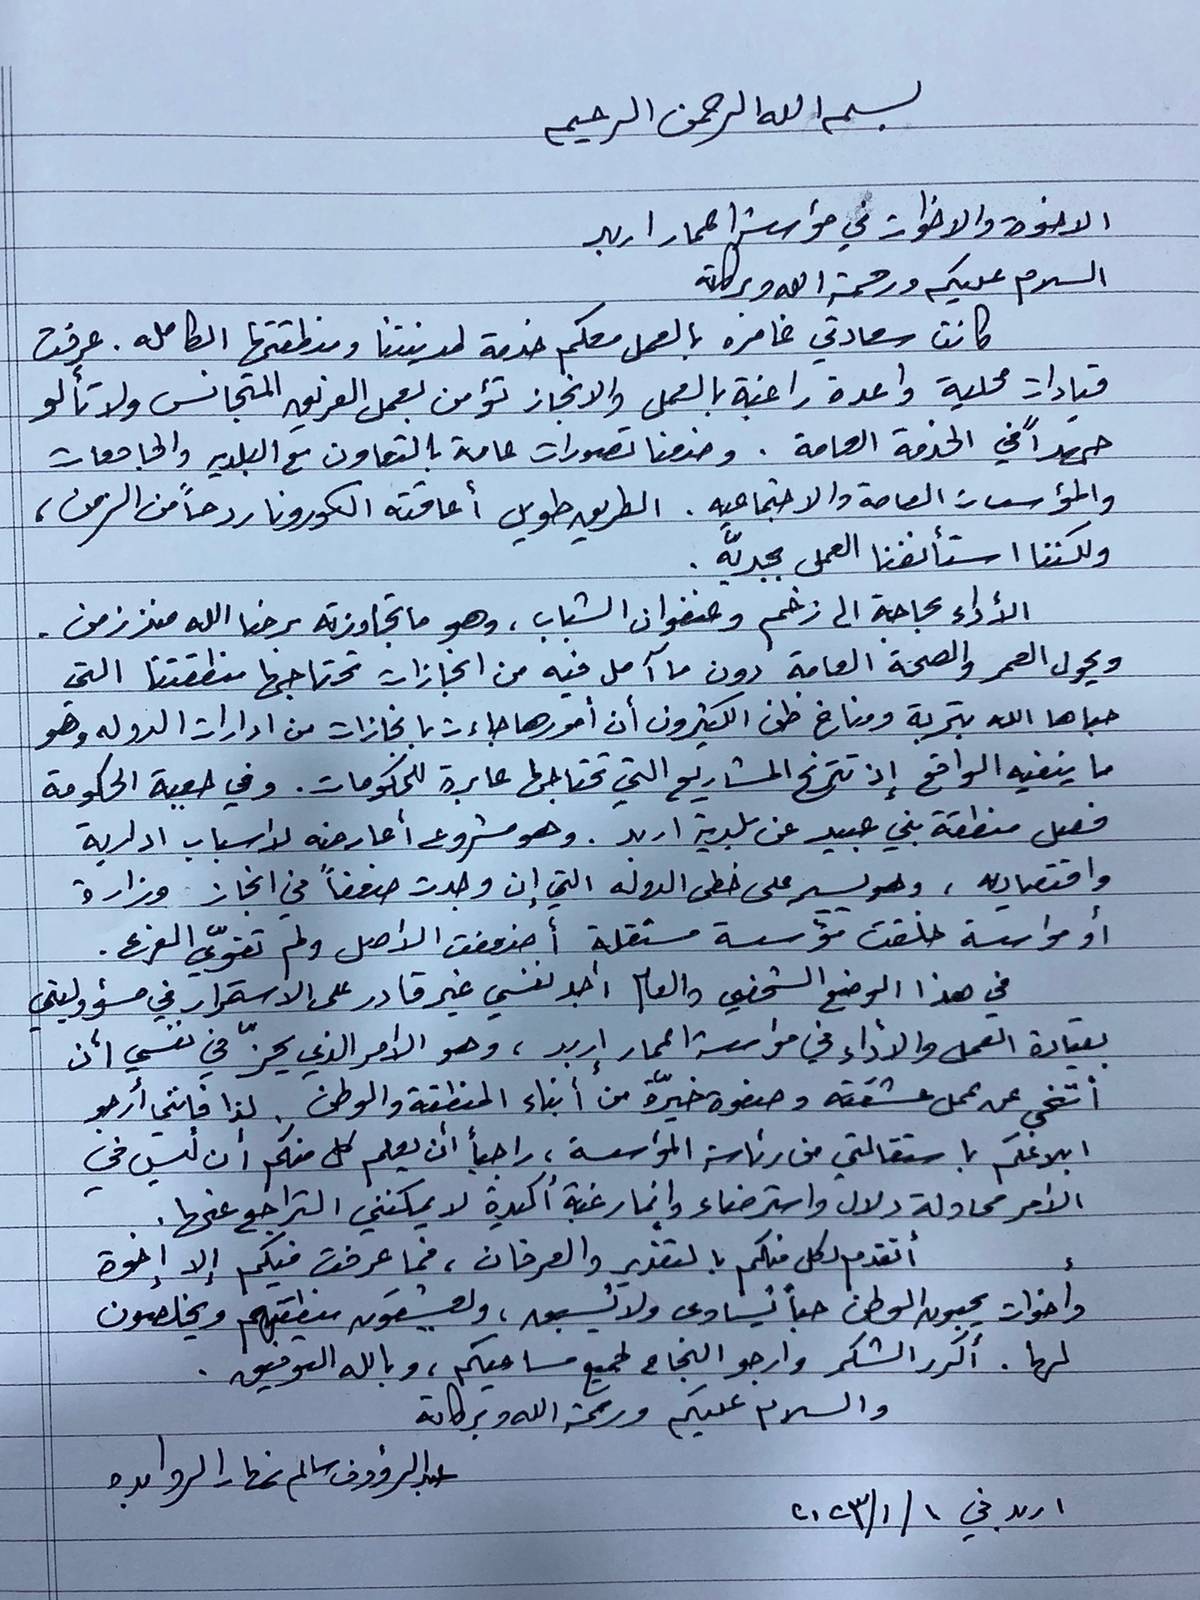 بسم الله الرحمن الرحيم
الاخوة والاخوات في مؤسسة اعمار اربد
السلام عليكم ورحمة الله وبركاته
كانت سعادتي غامره بالعمل معكم خدمة لمدينتنا ومنطقتها الكامله. عرفت
قيادات محلية واعدة راغبة بالعمل والانجاز تؤمن بعمل الفريق المتجانس ولا تألو
جهداً في الخدمة العامة. وضعنا تصورات عامة بالتعاون مع البلديه والجامعات
والمؤسسات العامة والاجتماعيه. الطريق طويل أعاقته الكورونا ردحاً من الزمن،
ولكننا استأنفنا العمل بجديّة.
الأداء بحاجة الى زخم وعنفوان الشباب، وهو ما تجاوزته برضا الله منذ زمن.
ويحول العمر والصحة العامة دون ما آمل فيه من انجازات تحتاجها منطقتنا التي
حباها الله بتربة ومناخ ظن الكثيرون أن أمورها جاءت بانجازات من ادارات الدوله وهو
ما ينفيه الواقع إذ تترنح المشاريع التي تحتاجها عابرة للحكومات. وفي جعبة الحكومة
فصل منطقة بني عبيد عن بلدية اربد. وهو مشروع أعارضه لاسباب ادارية
واقتصاديه، وهو يسير على خطى الدوله التي إن وجدت ضعفاً في انجاز وزارة
أو مؤسسة خلقت مؤسسة مستقلة أضعفت الاصل ولم تقوّي الفرع.
في هذا الوضع الشخصي والعام أجد نفسي غير قادر على الاستمرار في مسؤوليتي
بقيادة العمل والأداء في مؤسسة اعمار إربد، وهو الامر الذي يحزّ في نفسي أن
أتنحى عن عمل عشقته وصفوة خيّرة من أبناء المنطقة والوطن. لذا فانني أرجو
ابلاغكم باستقالتي من رئاسة المؤسسة، راجياً أن يعلم كل منكم أن ليس في
الامر محاولة دلال واسترضاء وإنما رغبة أكيدة لا يمكنني التراجع عنها.
أتقدم لكل منكم بالتقدير والعرفان، فما عرفت فيكم إلا إخوة
وأخوات يحبون الوطن حباً يُساوى ولا يُسبق، ويعشقون منطقتهم ويخلصون
لها. أكرر الشكر وارجو النجاح لجميع مساعيكم، وبالله التوفيق.
والسلام عليكم ورحمة الله وبركاته
عبدالرؤوف سالم نهار الروابده
اربد في ١/١/٢٠٢٣